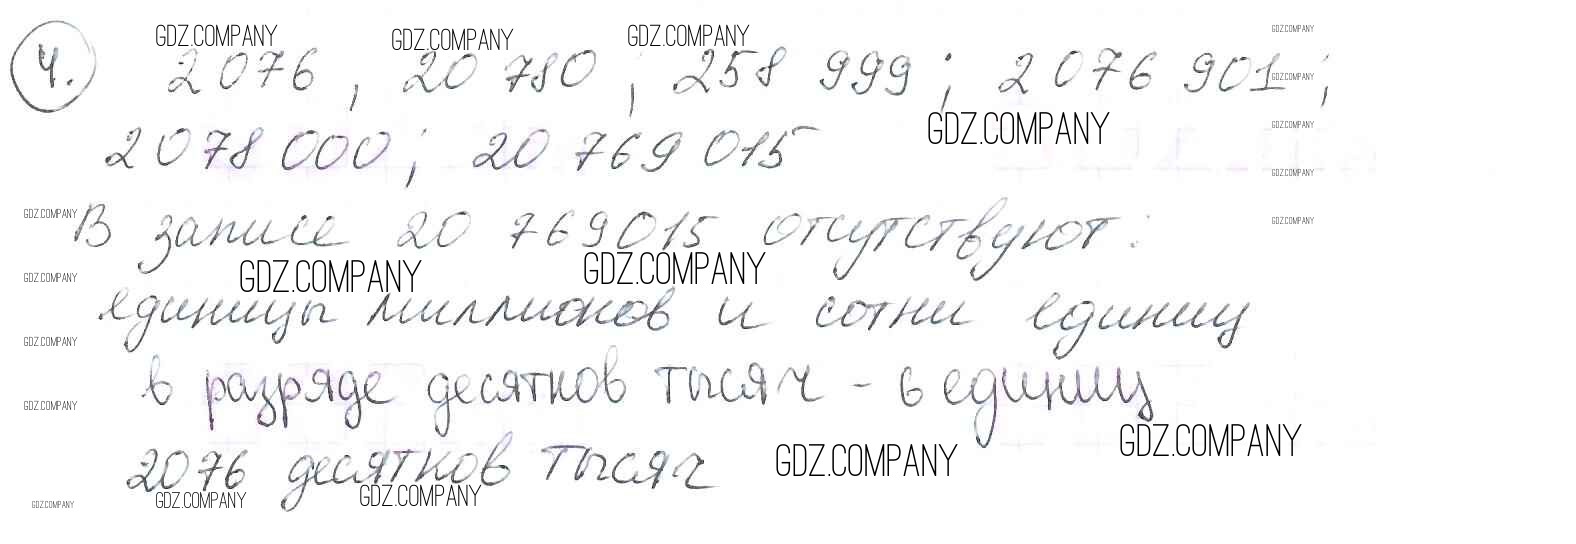 GDZ.COMPANY GDZ.COMPANY GDZ.COMPANY GDZ.COMPANY
4. 2 076 , 20 780 ; 258 999 ; 2 076 901 ;
GDZ.COMPANY
GDZ.COMPANY GDZ.COMPANY
2 078 000 ; 20 769 015
GDZ.COMPANY
GDZ.COMPANY В записе 20 769015 отсутствуют: GDZ.COMPANY
GDZ.COMPANY GDZ.COMPANY GDZ.COMPANY
единицы миллионов и сотни единиц
GDZ.COMPANY
в разряде десятков тысяч - 6 единиц
GDZ.COMPANY
GDZ.COMPANY GDZ.COMPANY
2076 десятков тысяч
GDZ.COMPANY GDZ.COMPANY GDZ.COMPANY